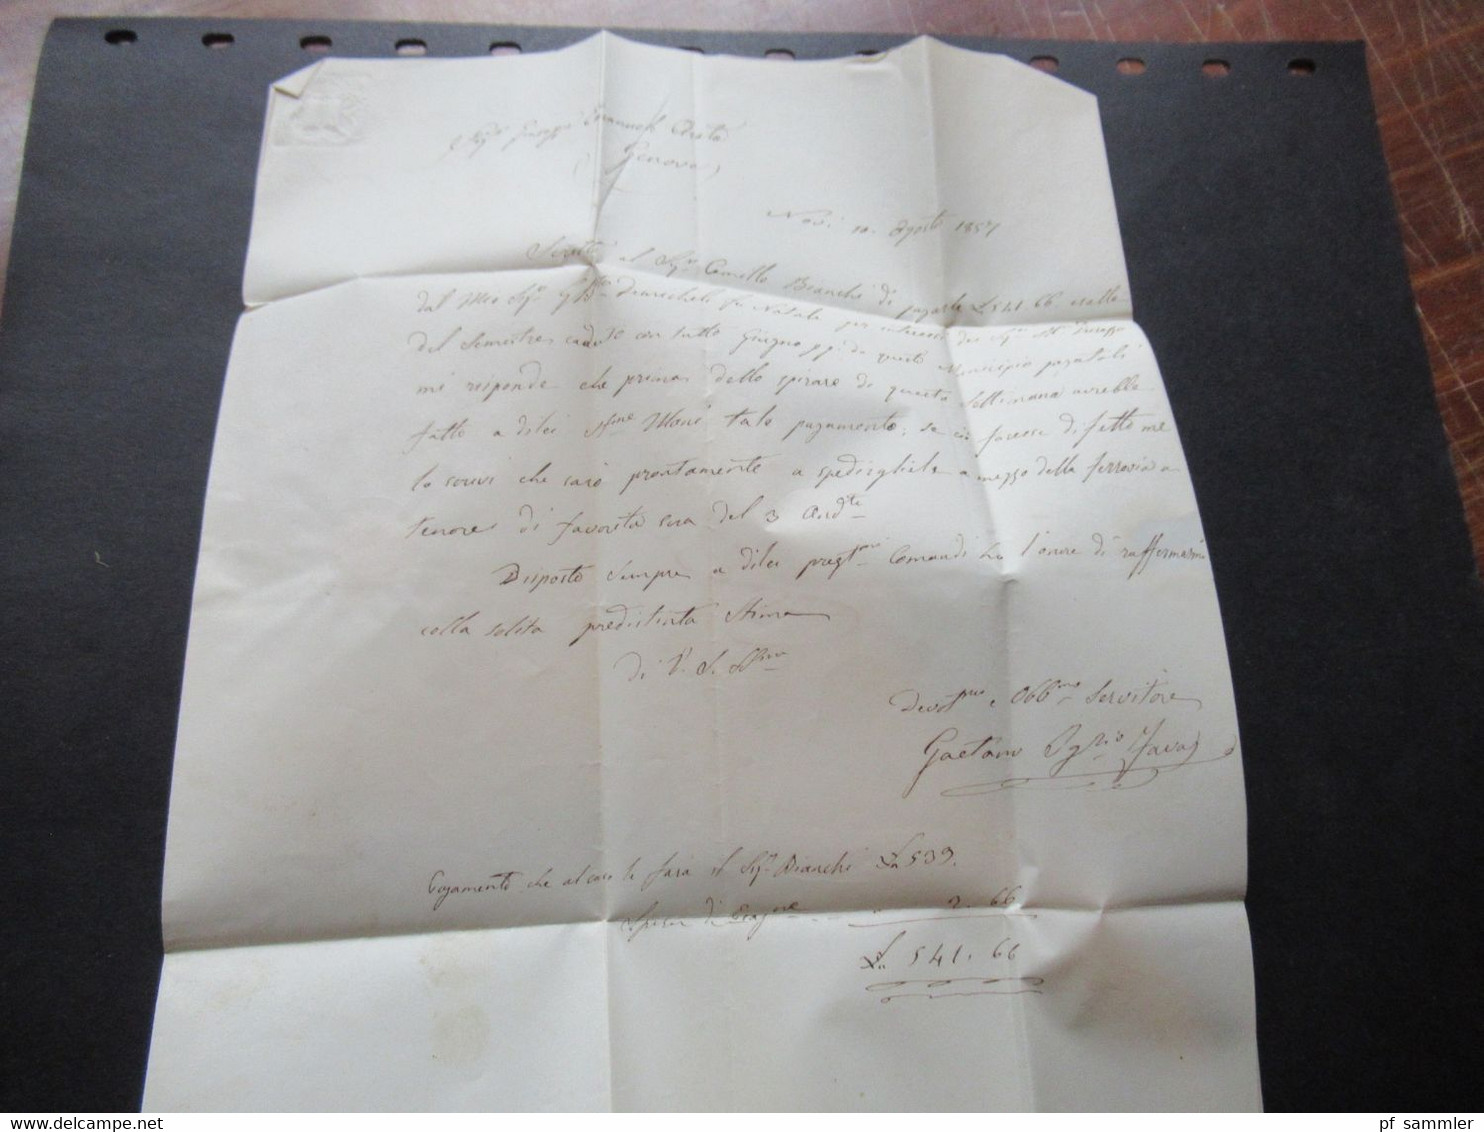 Genova
Novi 10. Agosto 1857
al Sig.r Camillo Bianchi di pagarle L. 541 66 esatte
dal Mio Sig.r fu Natale per interessi dei Sig.ri
del Semestre caduto con tutto Giugno pp.o da questo Municipio
mi risponde che prima dello spirare di questa Settimana avrebbe
fatto a di lei tale pagamento, se in difetto me
lo scrivi che sarò prontamente a spedirglieli a mezzo della ferrovia a
tenore di favorita sua del 3 And.te
Disposto sempre a di lei preg.mi Comandi ho l'onore di raffermarmi
colla solita predistinta Stima
Di V. S. Ill.ma
Devot.mo e Obb.mo Servitore
Gaetano
Pagamento che al caso le farà il Sig.r Bianchi L.n 539.
Spesa di 2. 66
L.n 541. 66
pf_sammler